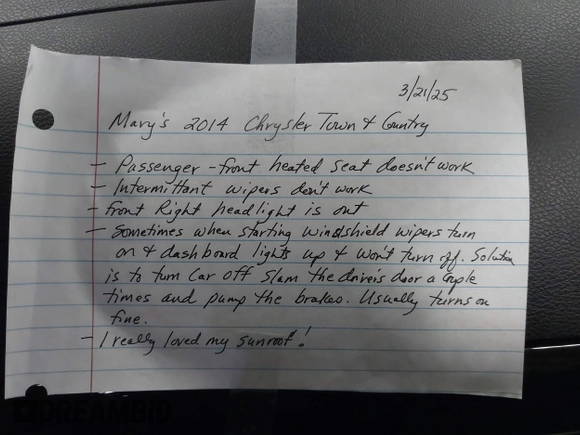 3/21/25
Mary's 2014 Chrysler Town & Country
- Passenger-front heated seat doesn't work
- Intermittant wipers don't work
- front Right headlight is out
- Sometimes when starting windshield wipers turn
on & dashboard lights up & won't turn off. Solution
is to turn car off slam the driver's door a cople
times and pump the brakes. Usually turns on
fine.
- I really loved my sunroof!
DREAMBID